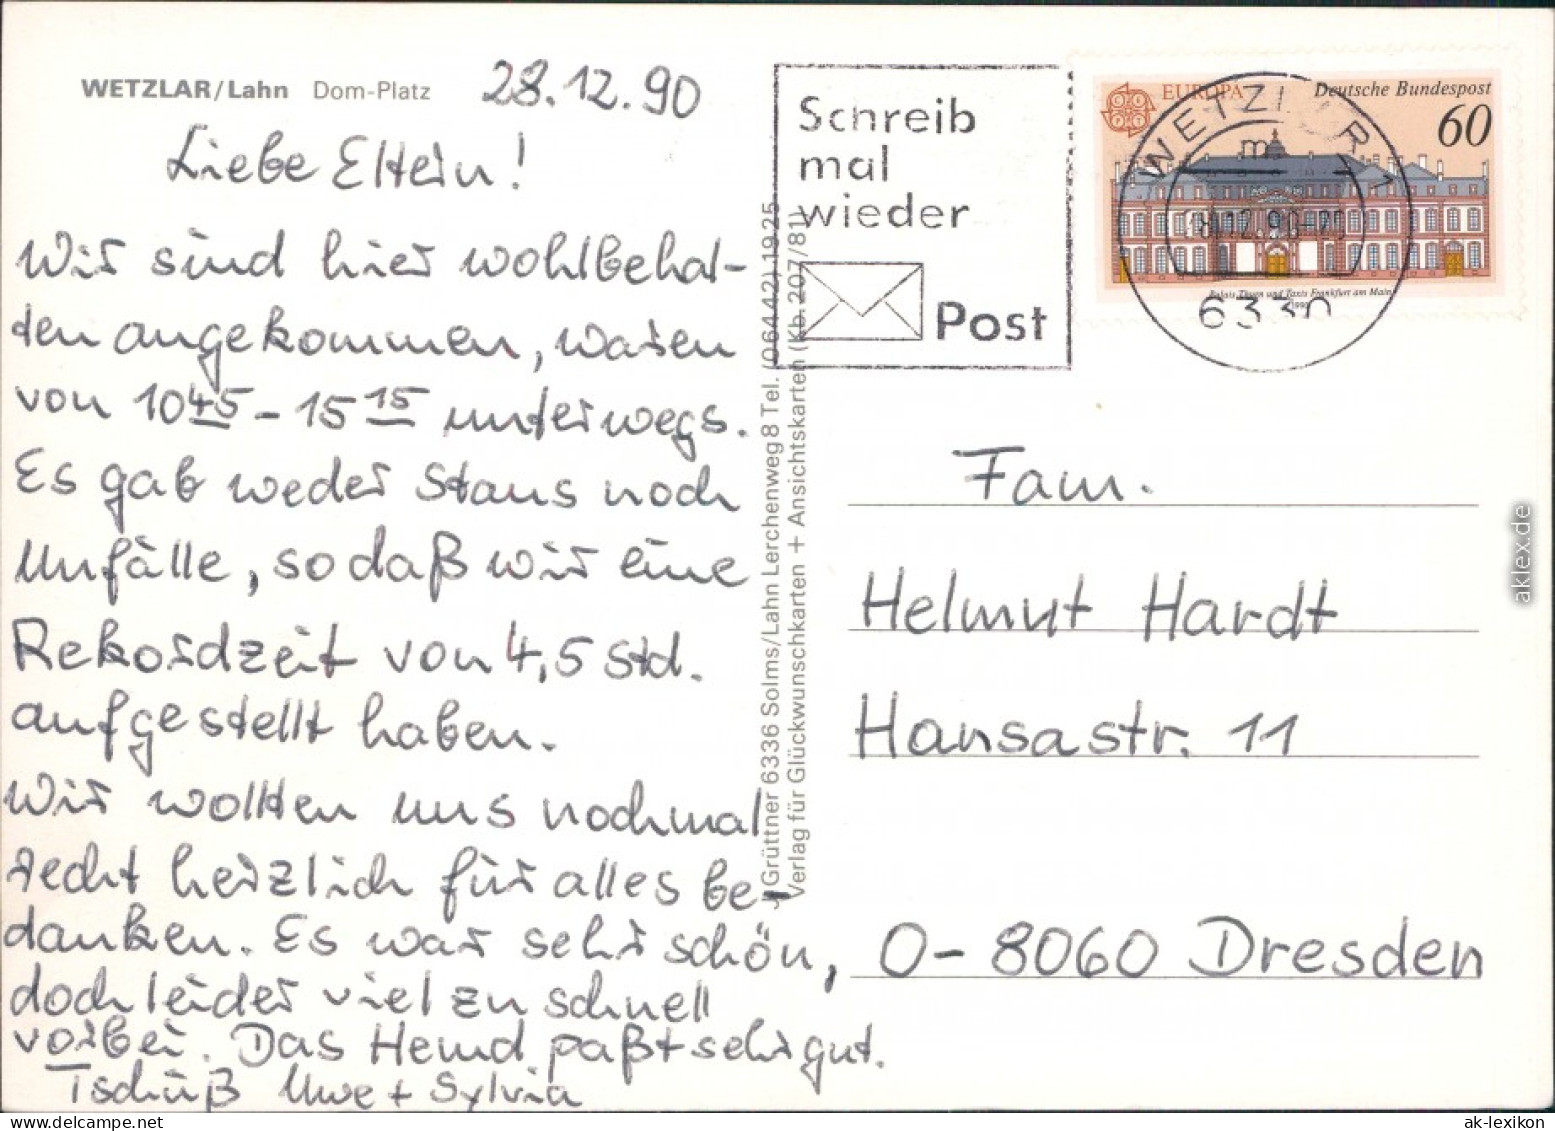 WETZLAR/Lahn Dom-Platz
28.12.90
Liebe Eltern!
Wir sind hier wohlbehal-
ten angekommen, waren
von 10 45 - 15 15 unterwegs.
Es gab weder Staus noch
Unfälle, sodaß wir eine
Rekordzeit von 4,5 Std.
aufgestellt haben.
Wir wollten uns nochmal
recht herzlich für alles be-
danken. Es war sehr schön,
doch leider viel zu schnell
vorbei. Das Hemd paßt sehr gut.
Tschüß Uwe + Sylvia
Grüttner 6336 Solms/Lahn Lerchenweg 8 Tel. (06442) 1925
Verlag für Glückwunschkarten + Ansichtskarten (Kb. 207/81)
Schreib
mal
wieder
Post
EUROPA
CEPT
Deutsche Bundespost
60
Palais Thurn und Taxis Frankfurt am Main
1990
WETZLAR 1
6330
Fam.
Helmut Hardt
Hansastr. 11
O-8060 Dresden
aklex.de
ak-lexikon